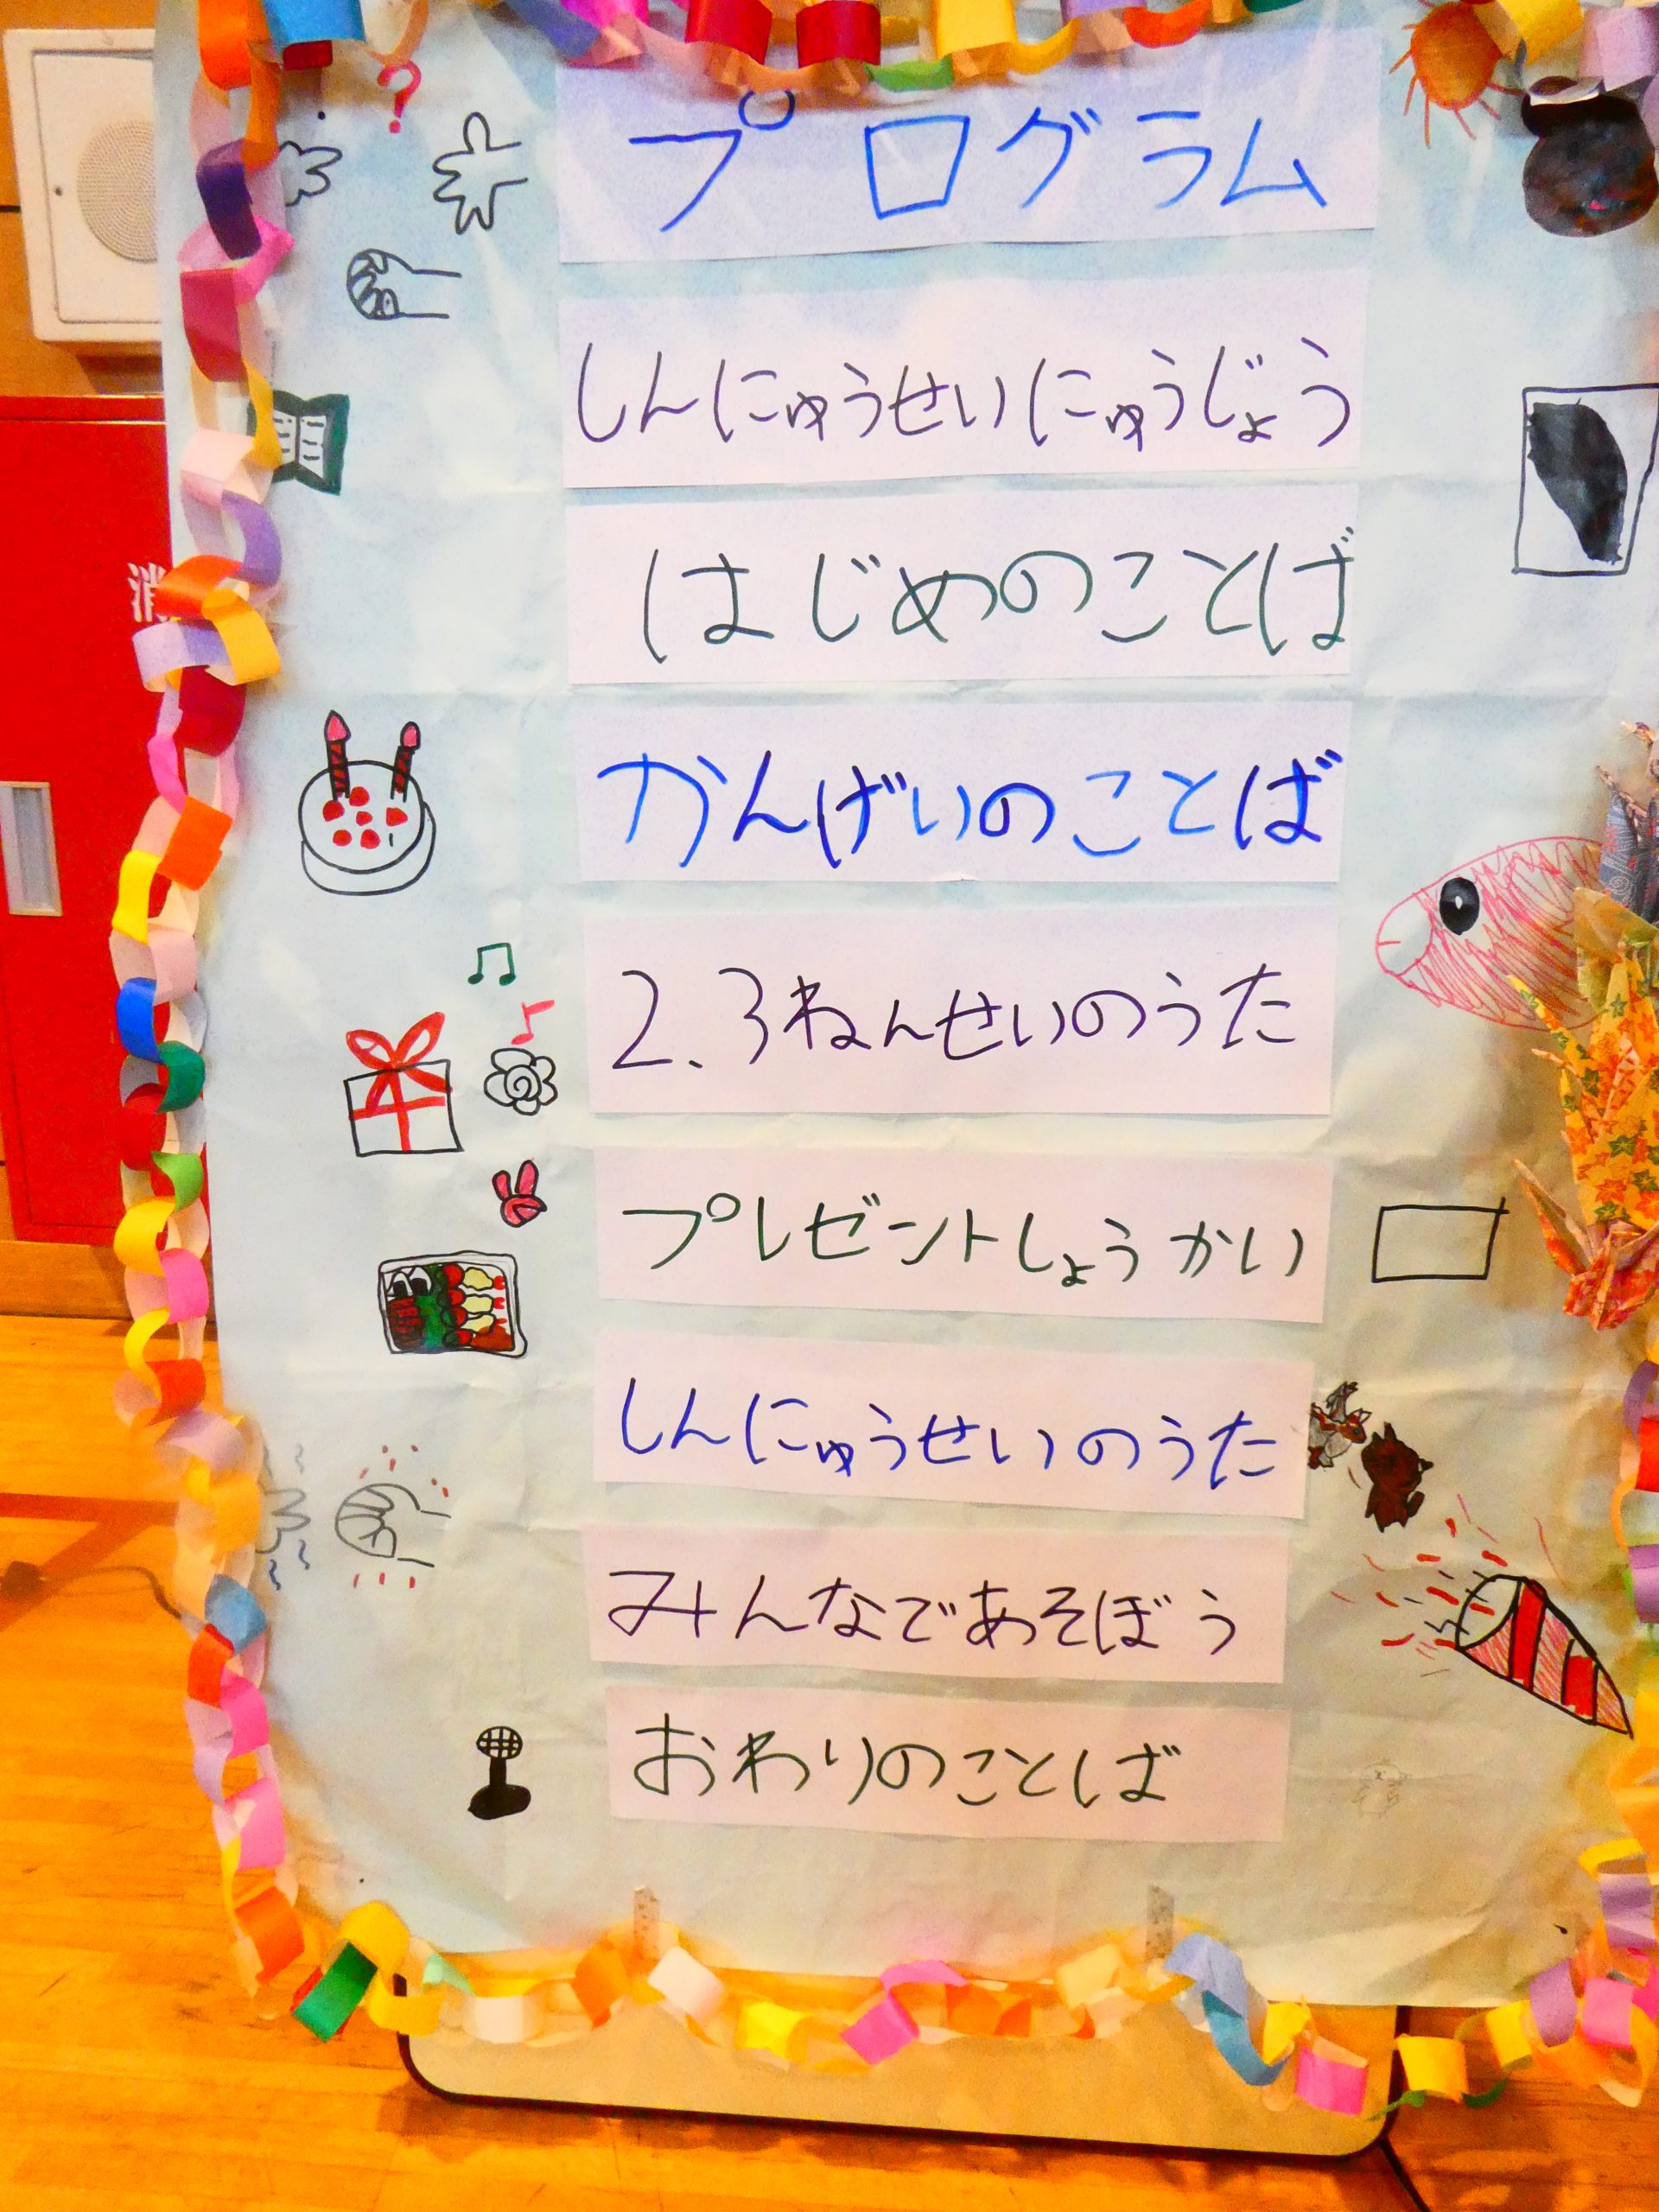 プログラム
しんにゅうせいにゅうじょう
はじめのことば
かんげいのことば
2、3ねんせいのうた
プレゼントしょうかい
しんにゅうせいのうた
みんなであそぼう
おわりのことば
消
?